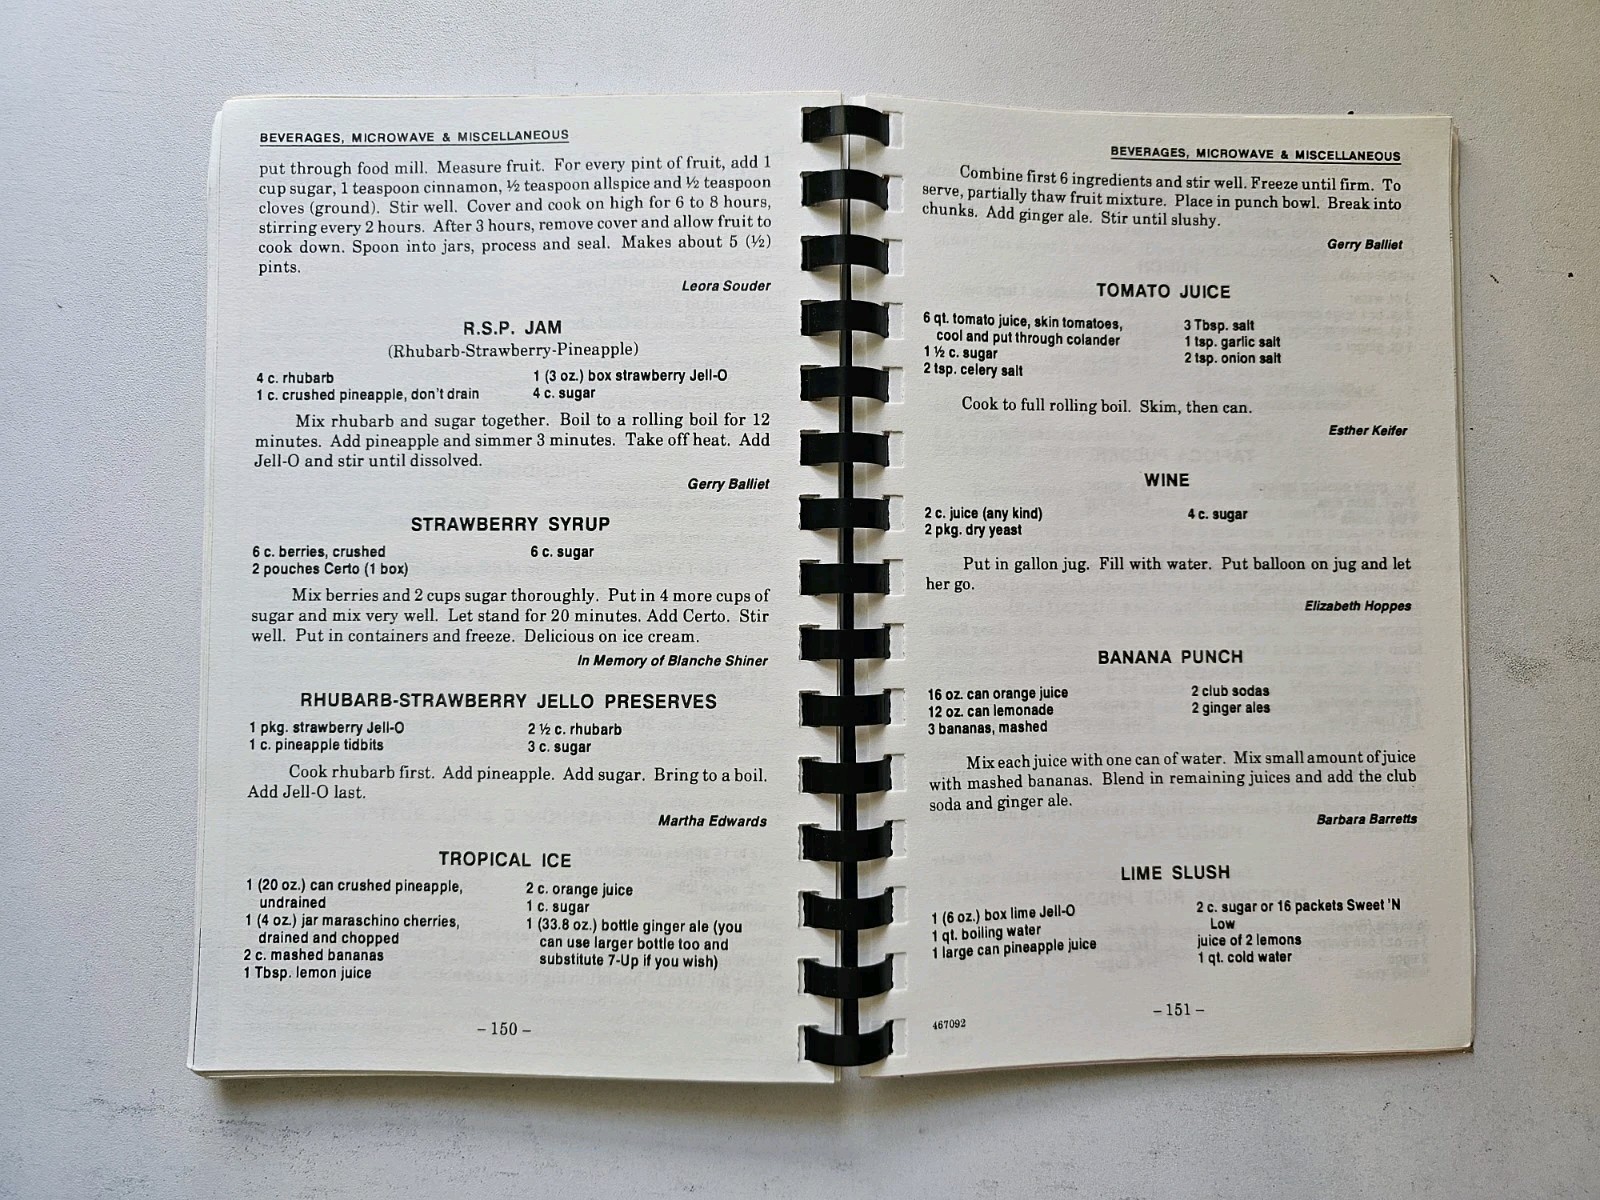 BEVERAGES, MICROWAVE & MISCELLANEOUS
put through food mill. Measure fruit. For every pint of fruit, add 1
cup sugar, 1 teaspoon cinnamon, ½ teaspoon allspice and ½ teaspoon
cloves (ground). Stir well. Cover and cook on high for 6 to 8 hours,
stirring every 2 hours. After 3 hours, remove cover and allow fruit to
cook down. Spoon into jars, process and seal. Makes about 5 (½)
pints.
Leora Souder
R.S.P. JAM
(Rhubarb-Strawberry-Pineapple)
4 c. rhubarb
1 c. crushed pineapple, don't drain
1 (3 oz.) box strawberry Jell-O
4 c. sugar
Mix rhubarb and sugar together. Boil to a rolling boil for 12
minutes. Add pineapple and simmer 3 minutes. Take off heat. Add
Jell-O and stir until dissolved.
Gerry Balliet
STRAWBERRY SYRUP
6 c. berries, crushed
2 pouches Certo (1 box)
6 c. sugar
Mix berries and 2 cups sugar thoroughly. Put in 4 more cups of
sugar and mix very well. Let stand for 20 minutes. Add Certo. Stir
well. Put in containers and freeze. Delicious on ice cream.
In Memory of Blanche Shiner
RHUBARB-STRAWBERRY JELLO PRESERVES
1 pkg. strawberry Jell-O
1 c. pineapple tidbits
2 ½ c. rhubarb
3 c. sugar
Cook rhubarb first. Add pineapple. Add sugar. Bring to a boil.
Add Jell-O last.
Martha Edwards
TROPICAL ICE
1 (20 oz.) can crushed pineapple,
undrained
1 (4 oz.) jar maraschino cherries,
drained and chopped
2 c. mashed bananas
1 Tbsp. lemon juice
2 c. orange juice
1 c. sugar
1 (33.8 oz.) bottle ginger ale (you
can use larger bottle too and
substitute 7-Up if you wish)
- 150 -
BEVERAGES, MICROWAVE & MISCELLANEOUS
Combine first 6 ingredients and stir well. Freeze until firm. To
serve, partially thaw fruit mixture. Place in punch bowl. Break into
chunks. Add ginger ale. Stir until slushy.
Gerry Balliet
TOMATO JUICE
6 qt. tomato juice, skin tomatoes,
cool and put through colander
1 ½ c. sugar
2 tsp. celery salt
3 Tbsp. salt
1 tsp. garlic salt
2 tsp. onion salt
Cook to full rolling boil. Skim, then can.
Esther Keifer
WINE
2 c. juice (any kind)
2 pkg. dry yeast
4 c. sugar
Put in gallon jug. Fill with water. Put balloon on jug and let
her go.
Elizabeth Hoppes
BANANA PUNCH
16 oz. can orange juice
12 oz. can lemonade
3 bananas, mashed
2 club sodas
2 ginger ales
Mix each juice with one can of water. Mix small amount of juice
with mashed bananas. Blend in remaining juices and add the club
soda and ginger ale.
Barbara Barretts
LIME SLUSH
1 (6 oz.) box lime Jell-O
1 qt. boiling water
1 large can pineapple juice
2 c. sugar or 16 packets Sweet 'N
Low
juice of 2 lemons
1 qt. cold water
467092
- 151 -